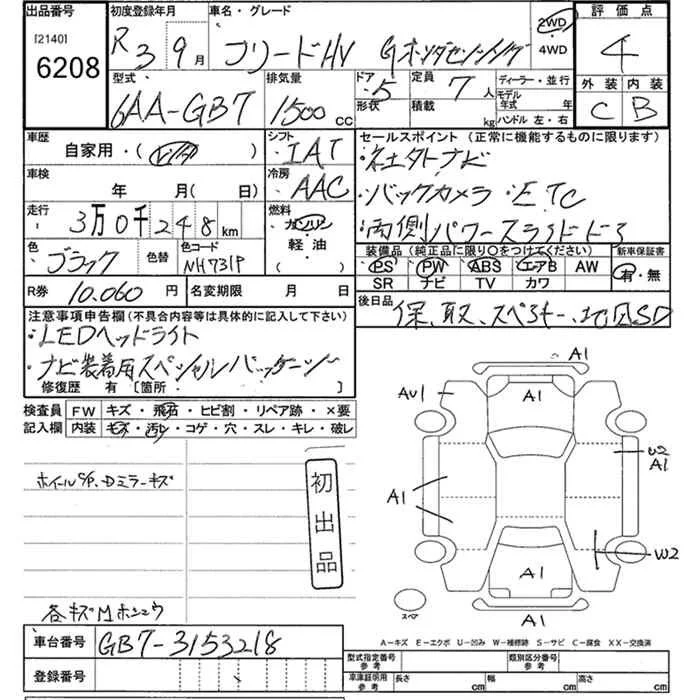 出品番号
[2140]
6208
初度登録年月
R 3 9月
車名・グレード
フリードHV Gホンダセンシング
2WD
・4WD
評価点
4
外装 内装
C B
型式
6AA-GB7
排気量
1500cc
ドア 5
形状
定員 7人
積載 kg
ディーラー・並行
モデル年式 年
ハンドル 左・右
車歴
自家用・( )
シフト
IAT
車検
年 月( 日)
冷房
AAC
走行
3万0千248km
燃料
ガソリン
軽油
( )
色
ブラック
色替
色コード
NH731P
R券 10,060円
名変期限 月 日
セールスポイント (正常に機能するものに限ります)
・社外ナビ
・バックカメラ・ETC
・両側パワースライドドア
装備品 (純正品に限り○をつけてください)
PS PW ABS エアB AW
SR ナビ TV カワ
新車保証書
有・無
後日品
保、取、スペアキー、地図SD
注意事項申告欄(不具合内容等は具体的に記入して下さい)
・LEDヘッドライト
・ナビ装着用スペシャルパッケージ
修復歴 有 [箇所・ ]
検査員
記入欄
FW キズ・飛石・ヒビ割・リペア跡・×要
内装 キズ・汚レ・コゲ・穴・スレ・キレ・破レ
ホイールC/P、Dミラーキズ
初出品
各キズMホンユウ
A1
A1
AU1
U2
A1
A1
W2
A1
A1
スペア
A-キズ E-エクボ U-凹み W-補修跡 S-サビ C-腐食 XX-交換済
車台番号 GB7-3153218
登録番号
型式指定番号
参考
類別区分番号
参考
車庫証明用
参考
長さ cm
幅 cm
高さ cm